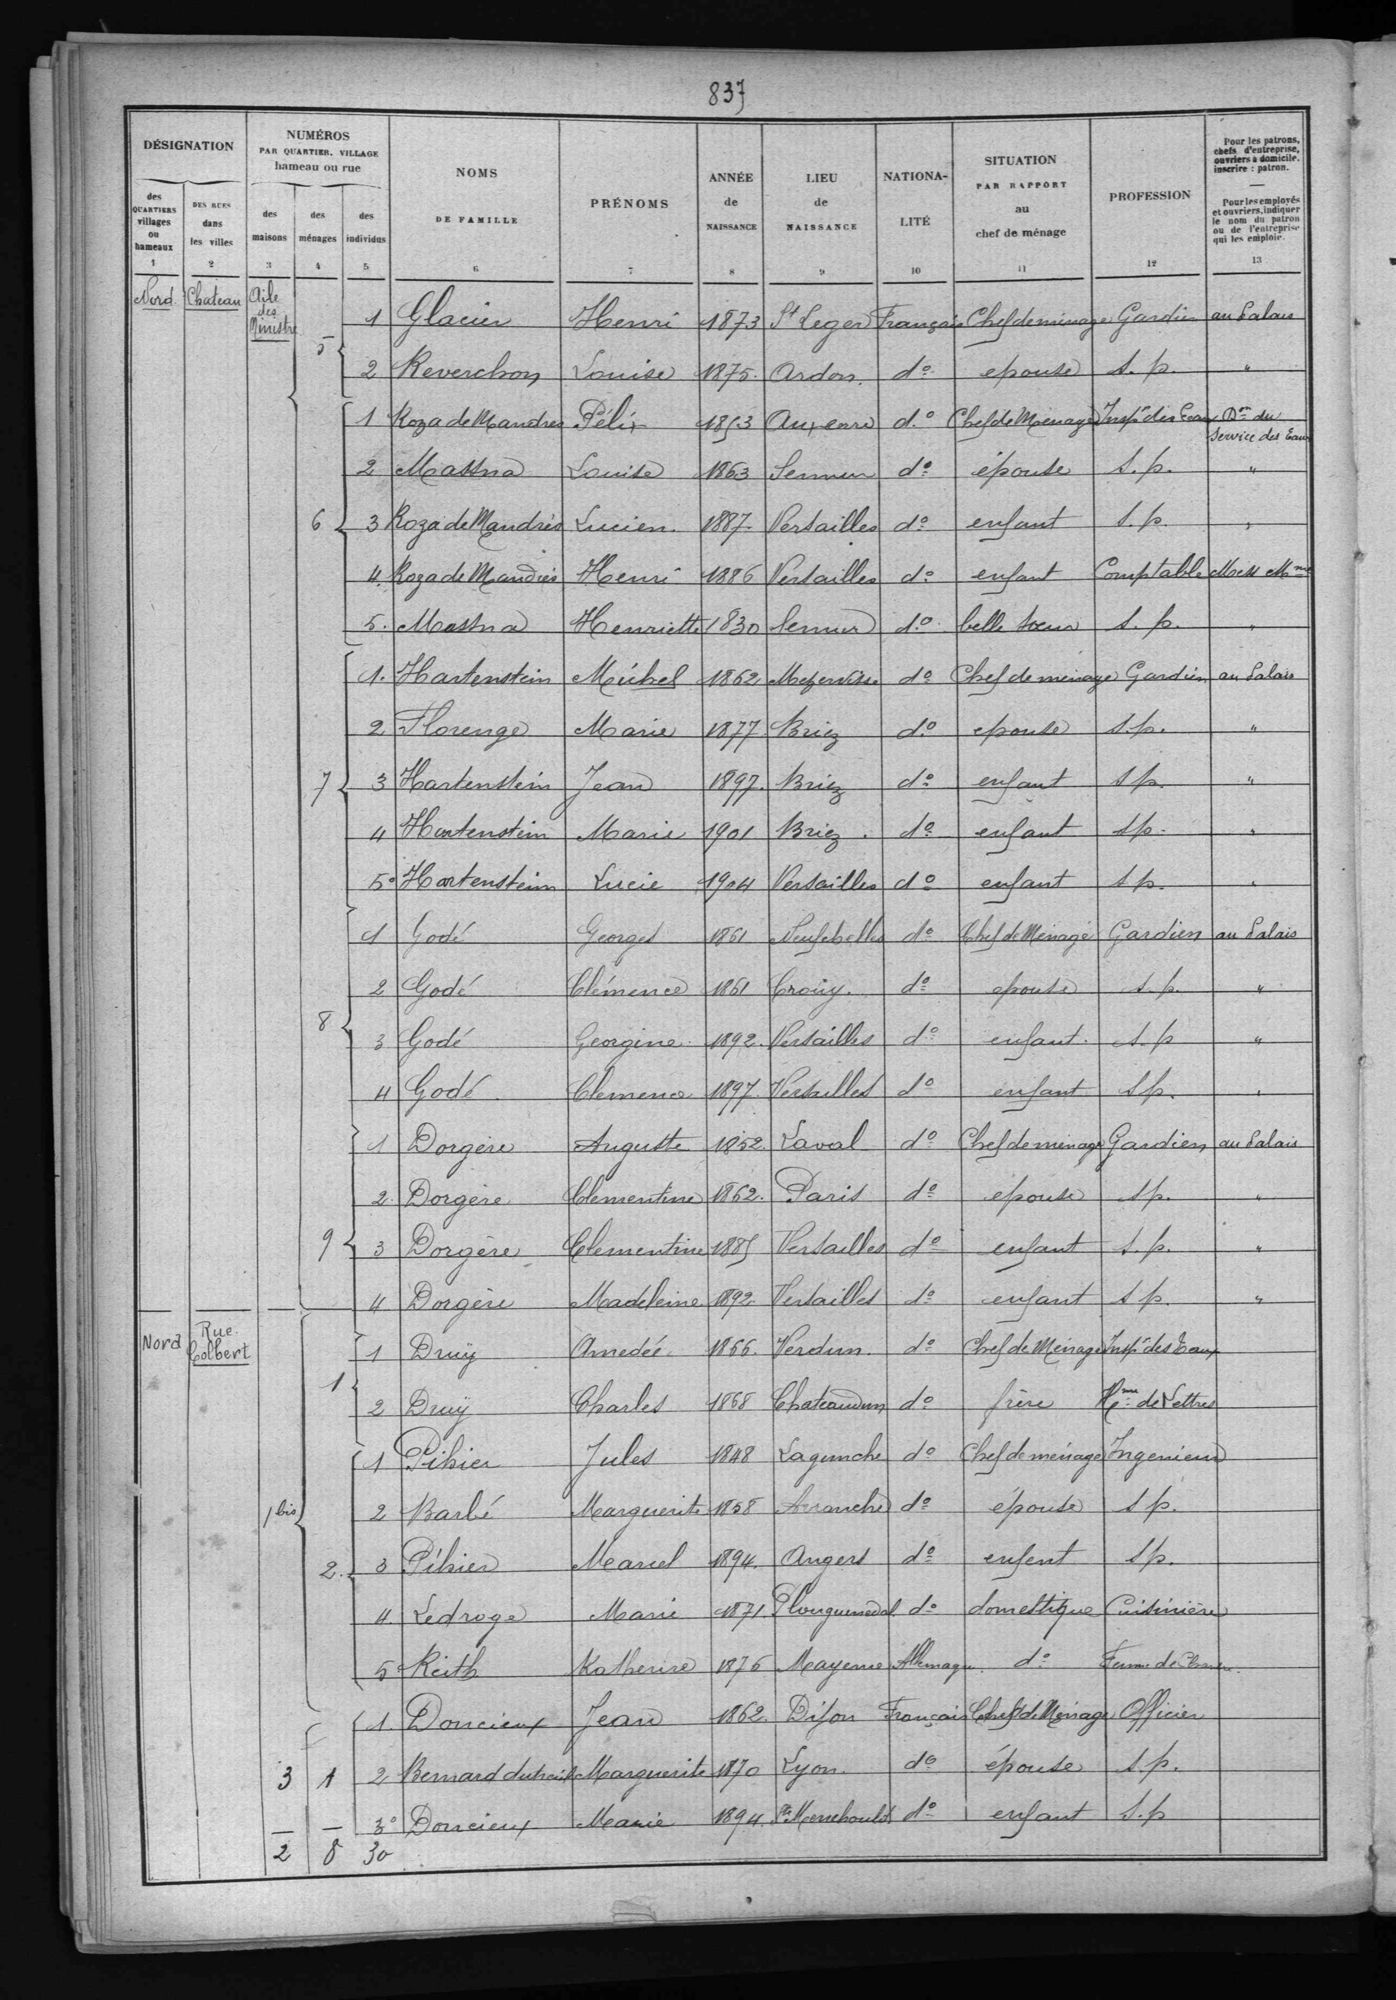 837
DÉSIGNATION
NUMÉROS
PAR QUARTIER, VILLAGE
hameau ou rue
des QUARTIERS villages ou hameaux
DES RUES dans les villes
des maisons
des ménages
des individus
NOMS DE FAMILLE
PRÉNOMS
ANNÉE de NAISSANCE
LIEU de NAISSANCE
NATIONALITÉ
SITUATION PAR RAPPORT au chef de ménage
PROFESSION
Pour les patrons, chefs d'entreprise, ouvriers à domicile, inscrire : patron.
Pour les employés et ouvriers, indiquer le nom du patron ou de l'entreprise qui les emploie.
1 2 3 4 5 6 7 8 9 10 11 12 13
Nord Chateau Aile des Ministre
5 1 Glacier Henri 1873 St Leger Français Chef de ménage Gardien au Palais
2 Reverchon Louise 1875 Ardon do epouse s. p. "
1 Roza de Mandres Félix 1853 Auxerre do Chef de Ménage Inspr des Eaux Don du Service des Eaux
2 Massna Louise 1863 Semur do épouse s. p. "
6 3 Roza de Mandrès Lucien 1887 Versailles do enfant s. p. "
4 Roza de Mandres Henri 1886 Versailles do enfant Comptable
5 Massna Henriette 1830 Semur do belle soeur s. p. "
1 Hartenstein Michel 1862 Metzervisse do Chef de menage Gardien au Palais
2 Florenge Marie 1877 Briez do epouse s. p. "
7 3 Hartenstein Jean 1897 Briez do enfant s p. "
4 Hartenstein Marie 1901 Briez do enfant s p. "
5 Hartenstein Lucie 1904 Versailles do enfant s p. "
1 Godé Georges 1861 Neufchelles do Chef de Ménage Gardien au Palais
2 Godé Clémence 1861 Crouy do epouse s. p. "
8 3 Godé Georgine 1892 Versailles do enfant s. p "
4 Godé Clemence 1897 Versailles do enfant s p. "
1 Dorgère Auguste 1852 Laval do Chef de ménage Gardien au Palais
2 Dorgère Clementine 1862 Paris do epouse s p. "
9 3 Dorgère Clementine 1885 Versailles do enfant s. p. "
4 Dorgère Madeleine 1892 Versailles do enfant s p. "
Nord Rue Colbert
1 1 Druÿ Amedée 1866 Verdun do Chef de Ménage Inspr des Eaux
2 Druÿ Charles 1868 Chateaudun do frère Hme de Lettres
1 bis 1 Pihier Jules 1848 do Chef de ménage Ingenieur
2 Barbé Marguerite 1858 Avranche do épouse s p.
2 3 Pihier Marcel 1894 Angers do enfent s p.
4 Ledroge Marie 1871 do domestique Cuisinière
5 Reith Katherine 1876 Mayence Allemagne do Femme de Chambre
1 Doncieux Jean 1862 Dijon Français Chef de Ménage Officier
3 1 2 Bernard Marguerite 1870 Lyon do épouse s. p.
3 Doncieux Marie 1894 Ste Menehould do enfant s. p
2 8 30